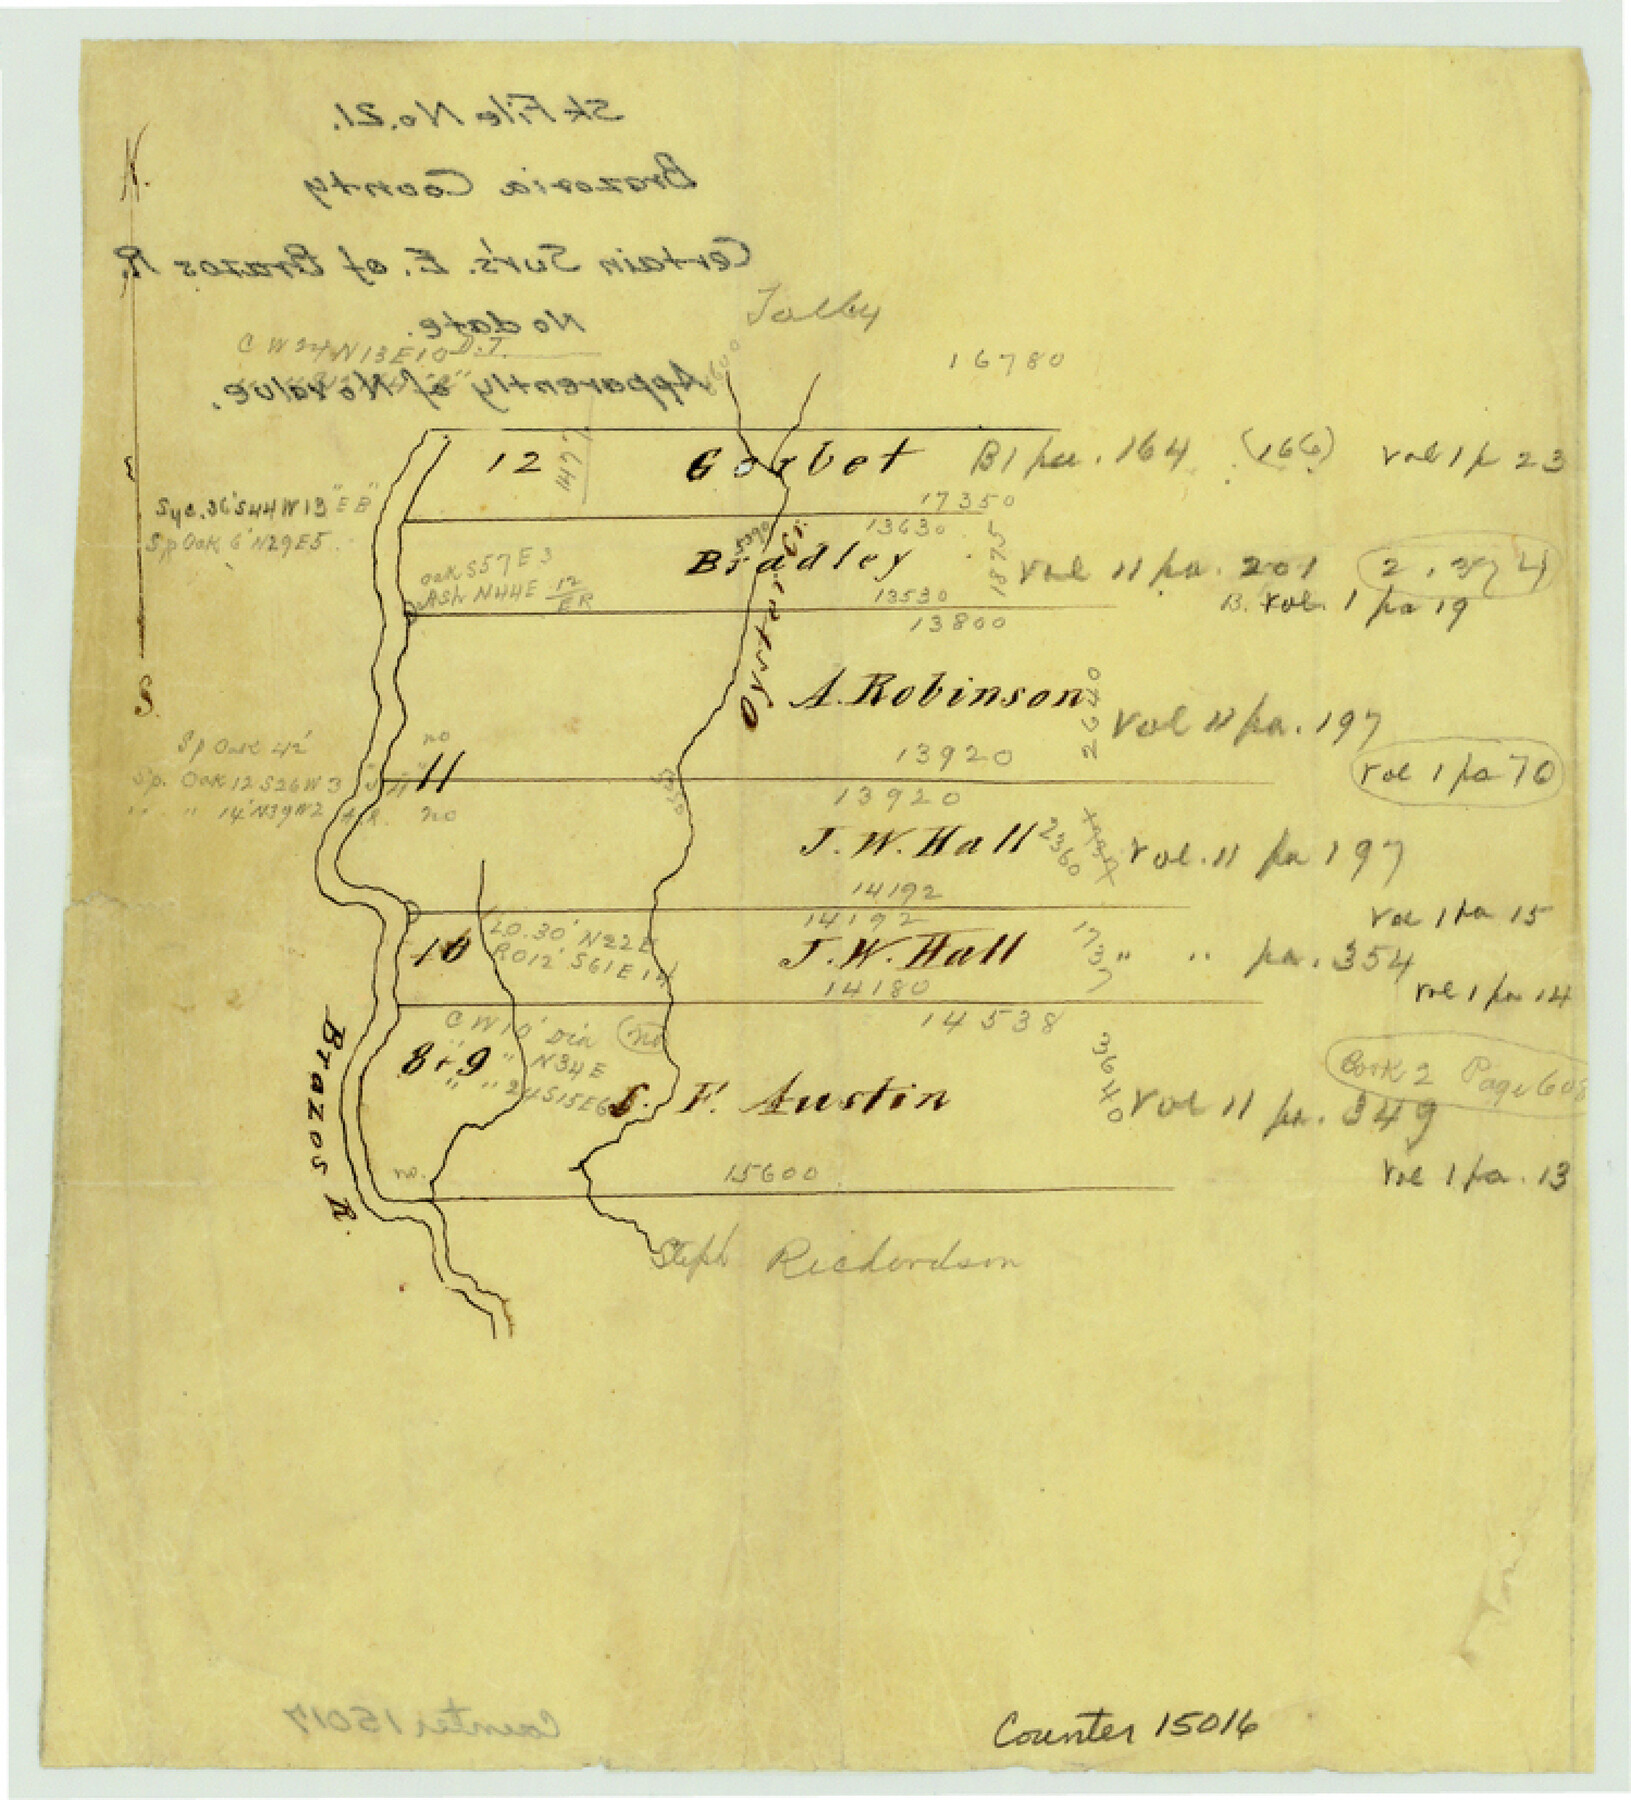 Sk File No. 21.
Brazoria County
Certain Sur's. E. of Brazos R.
No date.
Apparently of No value.
N.
S.
Tolby
C W 24 N13E10 D.T.
16780
12
1477
Gorbet
B1 pa. 164 (166) Vol 1 p 23
17350
Syc. 36' S44W13 "E B"
Sp Oak 6' N29E5
13630
5390
Oyster Cr.
Bradley
1875
Vol 11 pa. 201
oak S57E3
Ash N44E 12
ER
13530
B. Vol. 1 pa 19
13800
A. Robinson
2640
Vol 11 pa. 197
Sp Oak 42'
no
13920
Vol 1 pa 70
Sp. Oak 12 S26W3
11
" " 14' N39W2 A.R.
no
13920
J. W. Hall
2360
Vol. 11 pa 197
14192
14192
Vol 1 pa 15
10
LO. 30' N22E
RO12' S61E14
J. W. Hall
1737
" " pa. 354
14180
Vol 1 pa 14
14538
CW10' Dia no
8 & 9
" N34E
" " 24 S15E6
S. F. Austin
3640
Book 2 Page 608
Vol 11 pa. 349
Brazos R.
no.
15600
Vol 1 pa. 13
Steph Richardson
Counter 15017
Counter 15016